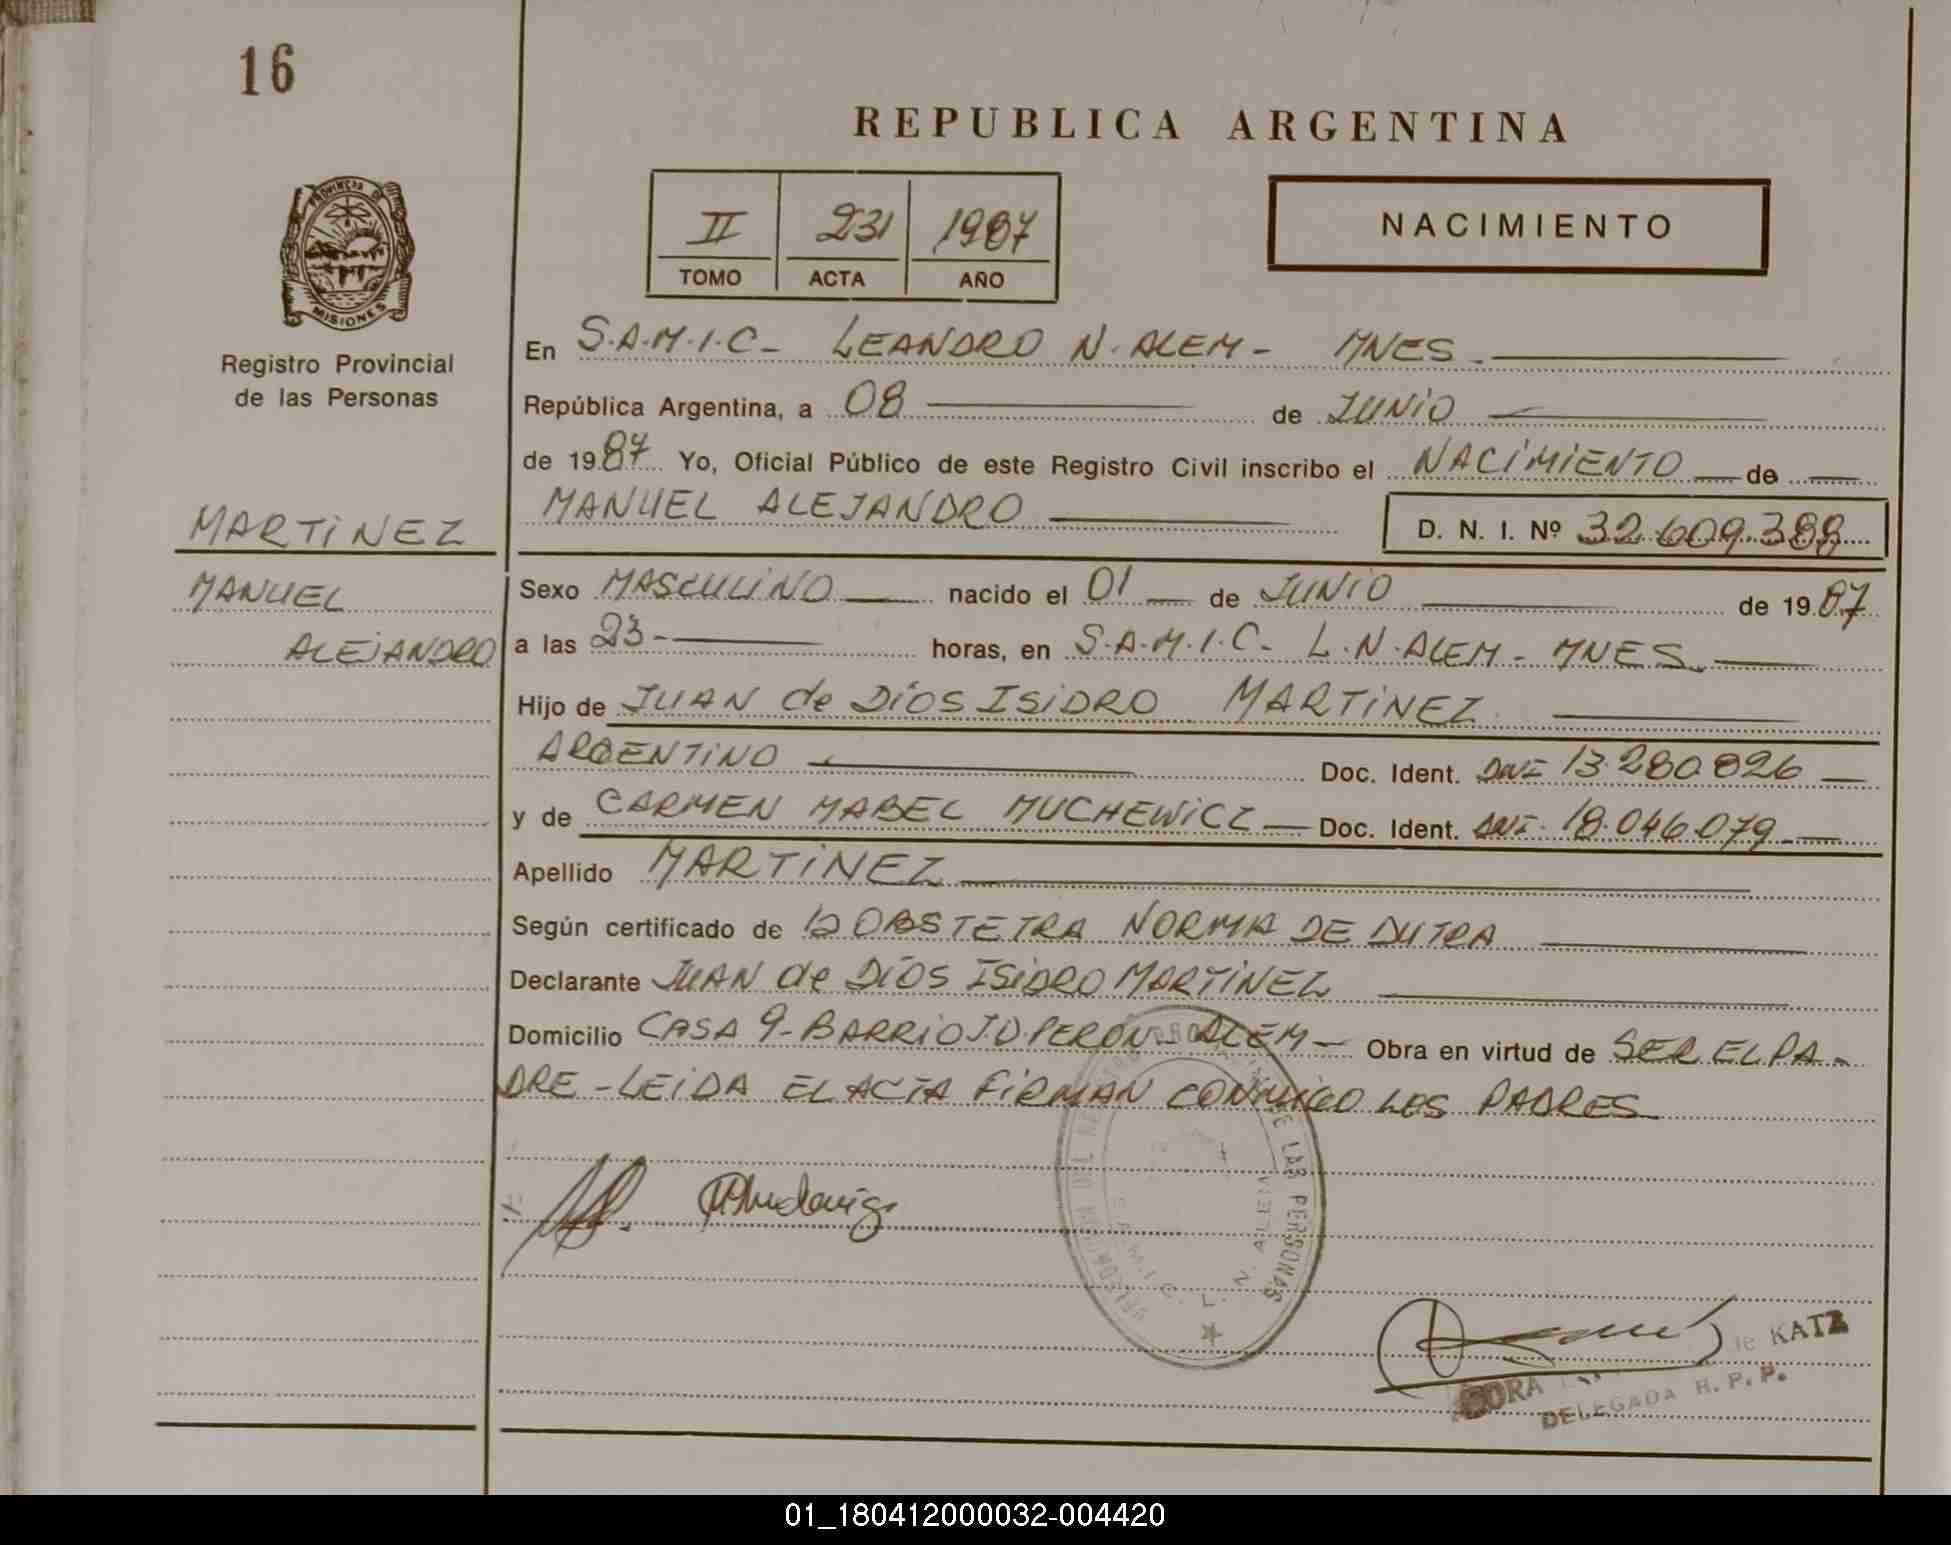 16
REPUBLICA ARGENTINA
II 231 1987
TOMO ACTA AÑO
NACIMIENTO
PROVINCIA DE
MISIONES
Registro Provincial
de las Personas
En S.A.M.I.C- LEANDRO N. ALEM- MNES.
República Argentina, a 08 de JUNIO
de 1987 Yo, Oficial Público de este Registro Civil inscribo el NACIMIENTO de
MANUEL ALEJANDRO
D. N. I. Nº 32.609.388
MARTINEZ
MANUEL
ALEJANDRO
Sexo MASCULINO nacido el 01 de JUNIO de 1987
a las 23- horas, en S.A.M.I.C- L.N. ALEM- MNES.
Hijo de JUAN de DIOS ISIDRO MARTINEZ
ARGENTINO Doc. Ident. DNI 13.280.826
y de CARMEN MABEL MUCHEWICZ Doc. Ident. DNI- 18.046.079
Apellido MARTINEZ
Según certificado de la OBSTETRA NORMA DE DUTRA
Declarante JUAN de DIOS ISIDRO MARTINEZ
Domicilio CASA 9- BARRIO J.D. PERON- ALEM- Obra en virtud de SER EL PA-
DRE - LEIDA EL ACTA FIRMAN CONMIGO LOS PADRES
DE LAS PERSONAS
S.A.M.I.C. L. N. ALEM
de KATZ
DELEGADA R. P. P.
01_180412000032-004420